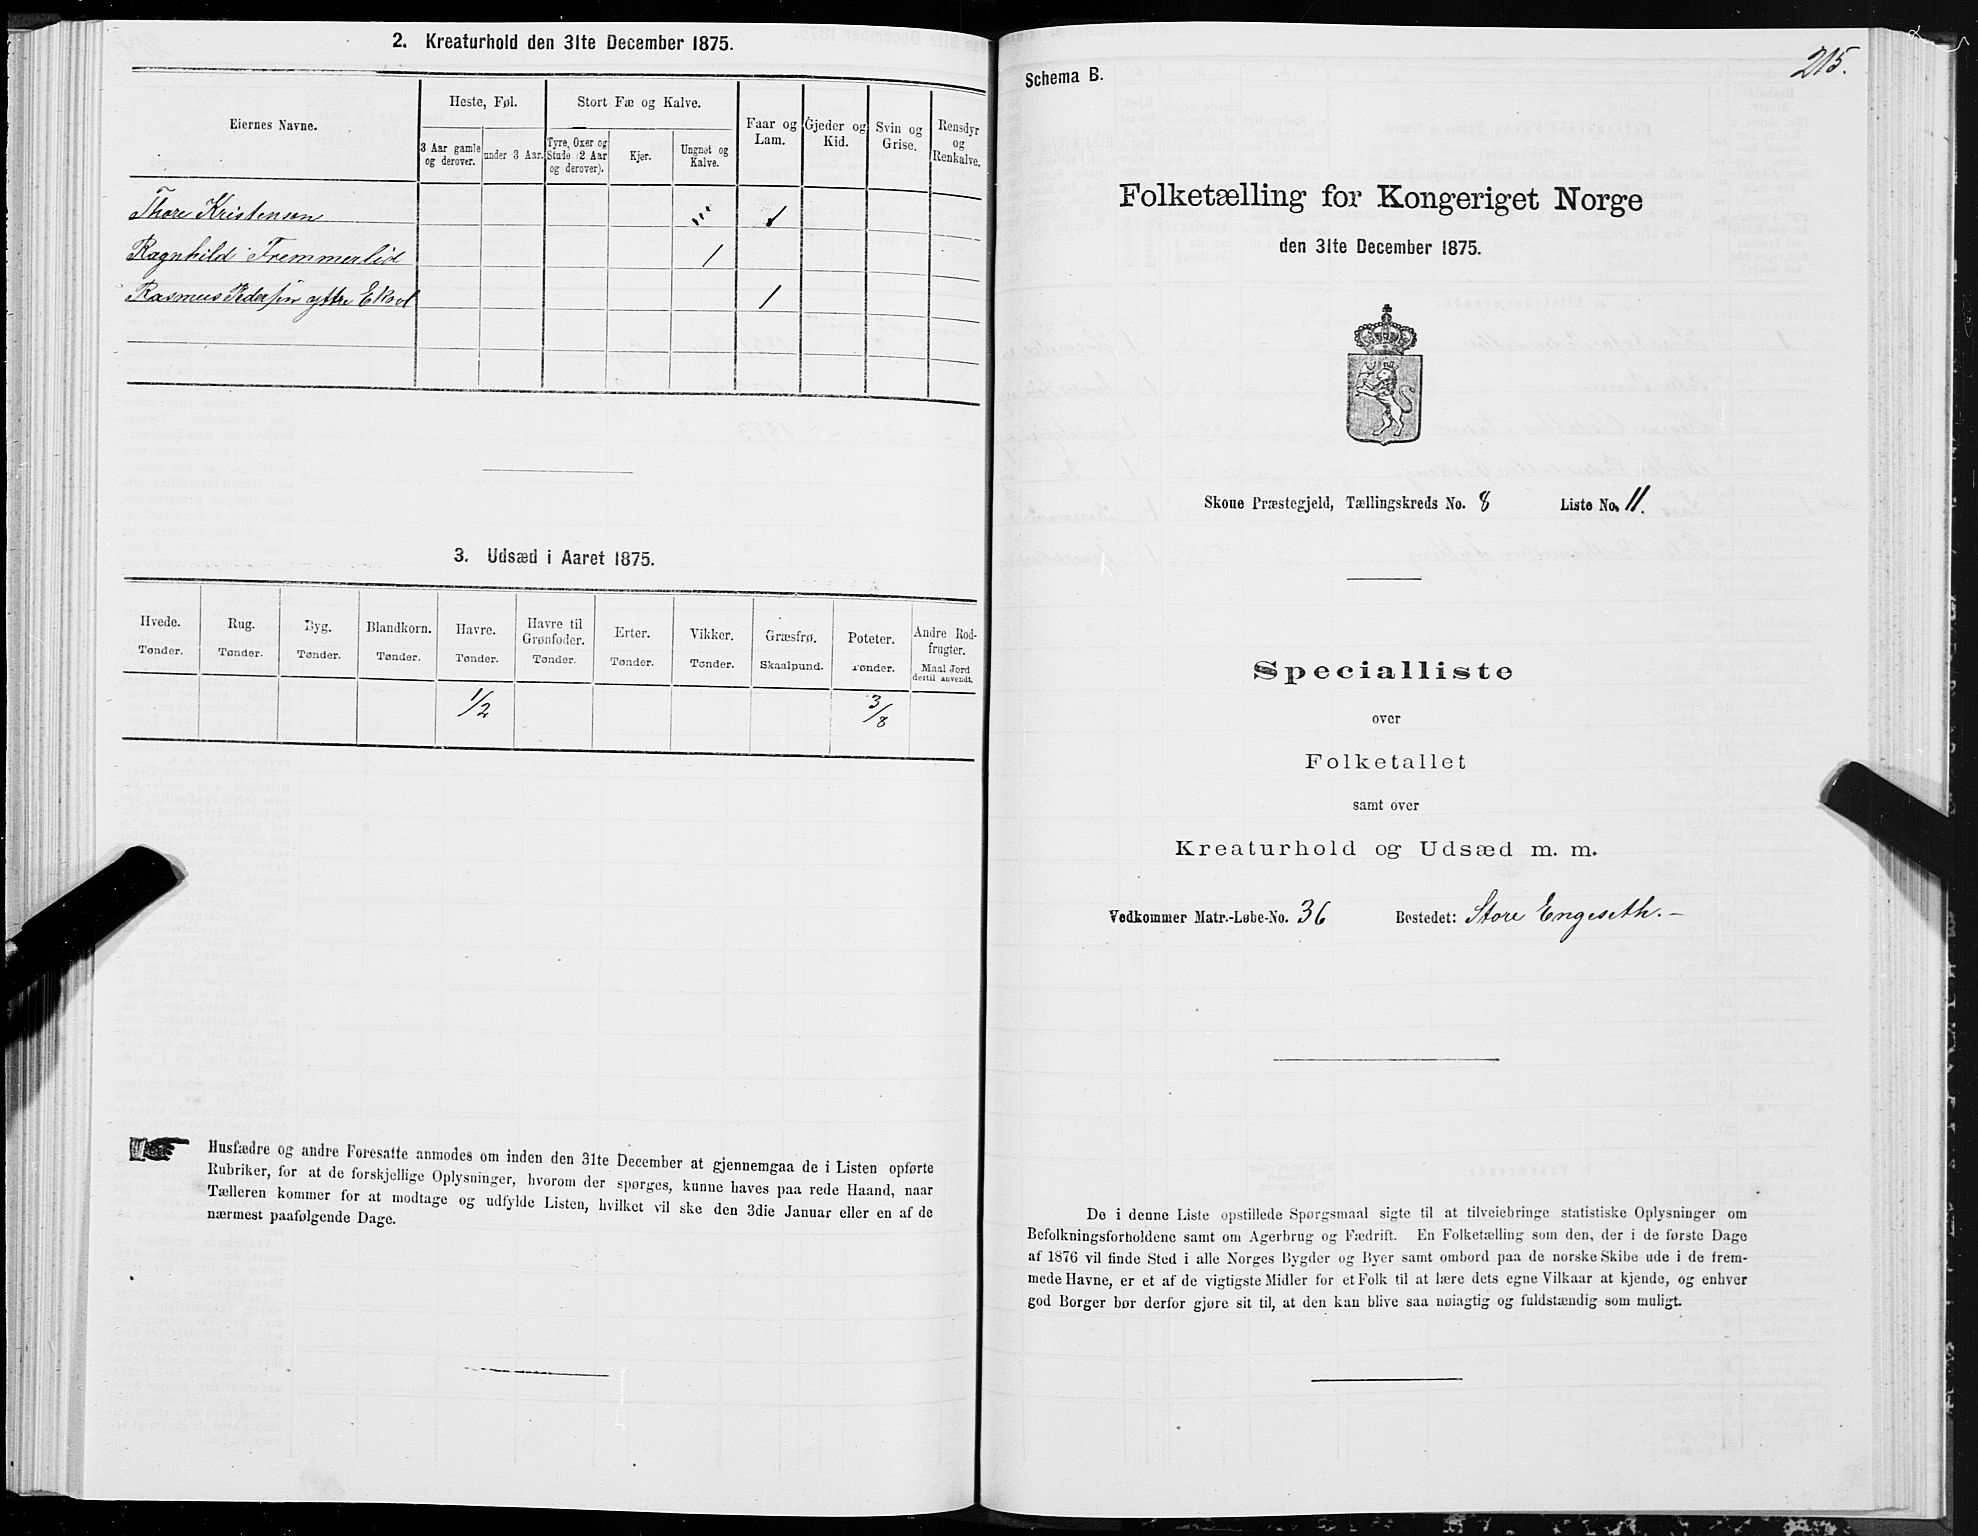 2. Kreaturhold den 31te December 1875.
Eiernes Navne.
Heste, Føl.
Stort Fæ og Kalve.
Faar og Lam.
Gjeder og Kid.
Svin og Grise.
Rensdyr og Renkalve.
3 Aar gamle og derover.
under 3 Aar.
Tyre, Oxer og Stude (2 Aar og derover).
Kjør.
Ungnøt og Kalve.
Thore Kristensen 1
Ragnhild Fremmerlid 1
Rasmus Pedersen yttre Ekol 1
3. Udsæd i Aaret 1875.
Hvede. Rug. Byg. Blandkorn. Havre. Havre til Grønfoder. Erter. Vikker. Græsfrø. Poteter. Andre Rodfrugter.
Tønder. Tønder. Tønder. Tønder. Tønder. Tønder. Tønder. Tønder. Skaalpund. Tønder. Maal Jord dertil anvendt.
1/2 3/8
Husfædre og andre Foresatte anmodes om inden den 31te December at gjennemgaa de i Listen opførte
Rubriker, for at de forskjellige Oplysninger, hvorom der spørges, kunne haves paa rede Haand, naar
Tælleren kommer for at modtage og udfylde Listen, hvilket vil ske den 3die Januar eller en af de
nærmest paafølgende Dage.
215.
Schema B.
Folketælling for Kongeriget Norge
den 31te December 1875.
Skoue Præstegjeld, Tællingskreds No. 8 Liste No. 11.
Specialliste
over
Folketallet
samt over
Kreaturhold og Udsæd m. m.
Vedkommer Matr.-Løbe-No. 36 Bostedet: Store Engeseth.–
De i denne Liste opstillede Spørgsmaal sigte til at tilveiebringe statistiske Oplysninger om
Befolkningsforholdene samt om Agerbrug og Fædrift. En Folketælling som den, der i de første Dage
af 1876 vil finde Sted i alle Norges Bygder og Byer samt ombord paa de norske Skibe ude i de frem-
mede Havne, er et af de vigtigste Midler for et Folk til at lære dets egne Vilkaar at kjende, og enhver
god Borger bør derfor gjøre sit til, at den kan blive saa nøiagtig og fuldstændig som muligt.